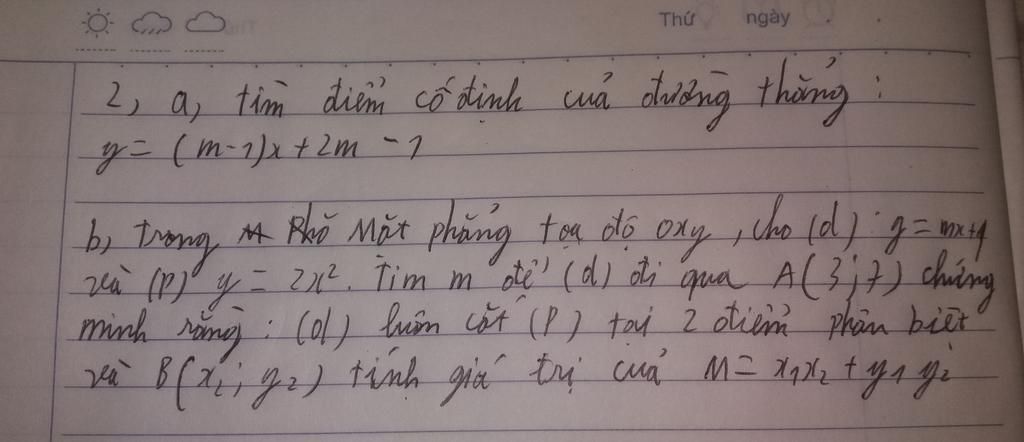 Thứ ngày
2, a, tìm điểm cố định của đường thẳng :
y = (m-1)x + 2m - 1
b, trong mặt phẳng tọa độ oxy, cho (d) : y = mx+1
và (P) y = 2x². Tìm m để (d) đi qua A(3;7) chứng
minh rằng : (d) luôn cắt (P) tại 2 điểm phân biệt
và B(x₂; y₂) tính giá trị của M = x₁x₂ + y₁y₂